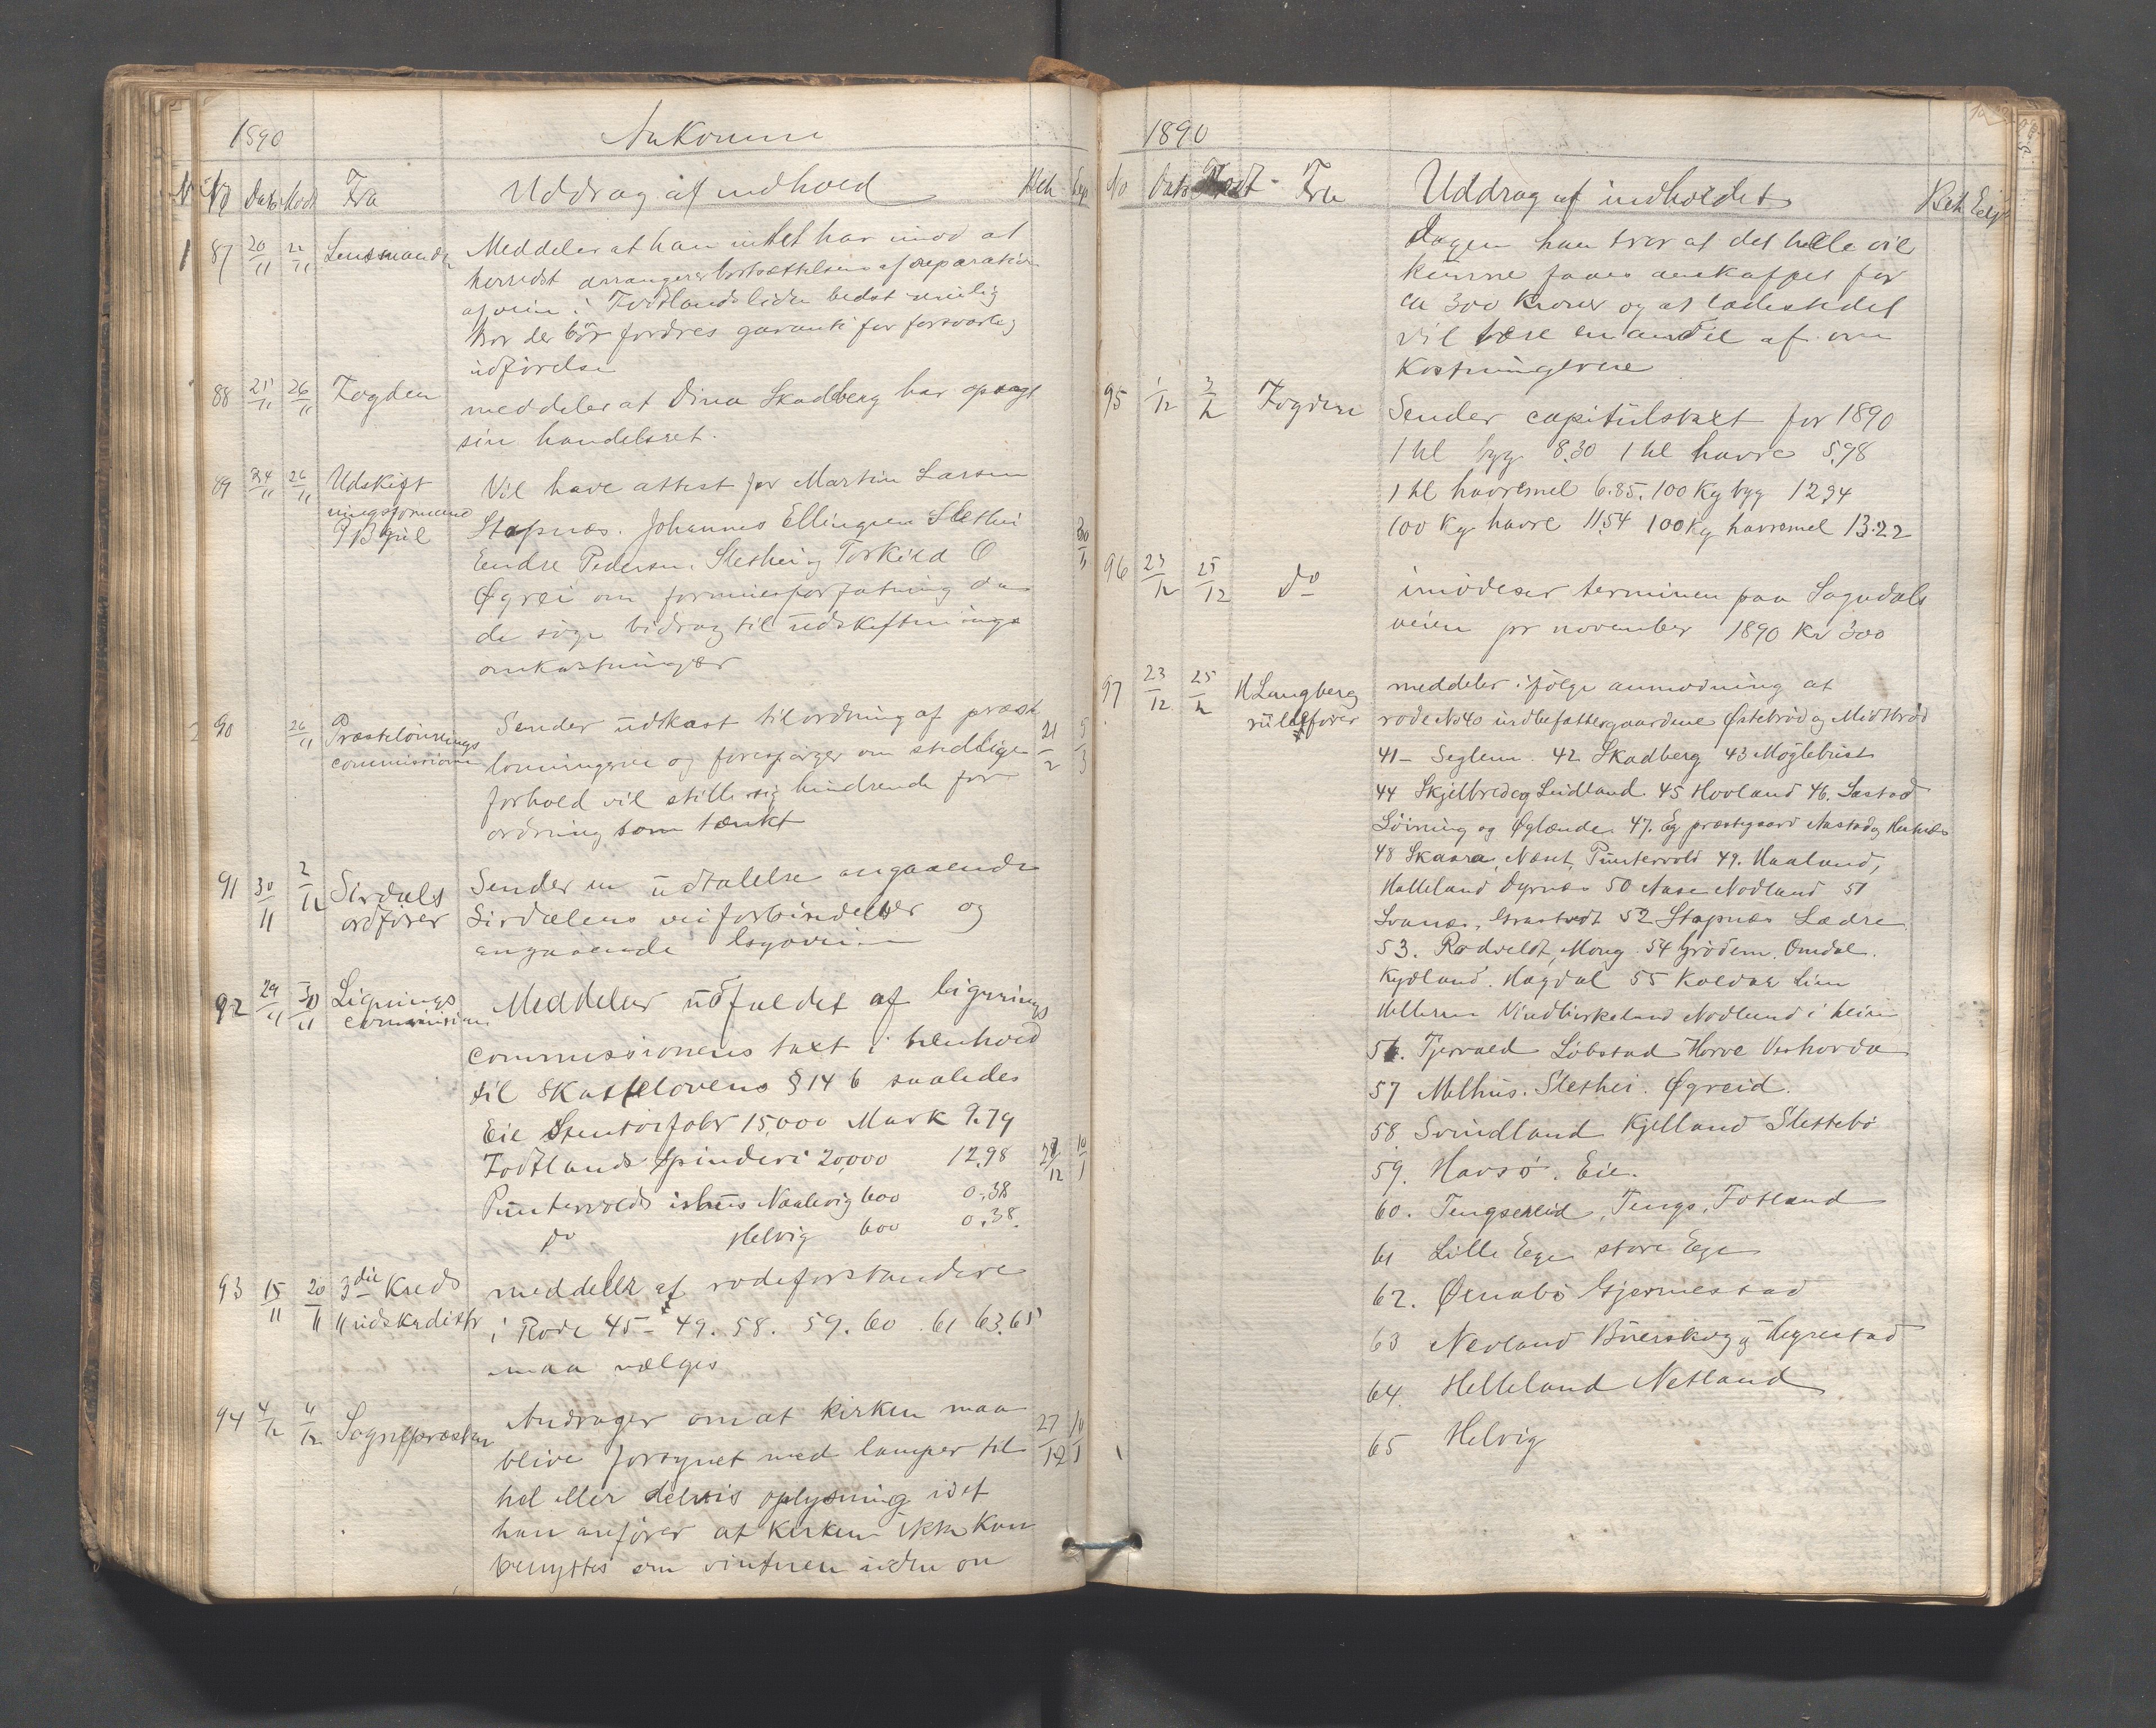 1890 Ankomne
No Dato Modt Fra Uddrag af indhold Beh Exp
87 20/11 22/11 Lensmanden Meddeler at han intet har imod at
herredet arrangerer fortsættelsen af reparation
af veien i Fodtlandsliden bedst mulig
hvor der bör fordres garanti for forsvarlig
udförelse
88 25/11 26/11 Fogden meddeler at Dina Skadberg har opsagt
sin handelsret.
89 24/11 26/11 Udskift Vil have attest for Martin Larsen
ningsformand Stapnæs. Johannes Ellingsen Slethei 30/11
Endre Pedersen Slethei og Torkild O
Øgrei om formuesforfatning da
de söge bidrag til udskiftnings
omkostninger
90 26/11 Præstelönnings Sender udkast til ordning af præste 21/2 5/3
commissionen lönningerne og forespörger om stedlige
forhold vil stille sig hindrende for
ordning som tænkt
91 30/11 2/12 Sirdals Sender en udtalelse angaaende
ordförer Sirdalens veiforbindelser og
angaaende
92 29/11 30/11 Lignings Meddeler udfaldet af lignings
commission commissionens taxt i henhold
til Skattelovens § 14 b saaledes
Eie Stentöifabr 15,000 Mark 9.79
Fodtlands Spinderi 20,000 12,98 27/12 10/1
Puntervolds ishus Naalevig 600 0.38
do Helvig 600 0.38.
93 15/11 20/11 3die Kreds meddeler at rodeforstandere
udskdistr i Rode 45 - 49. 58. 59. 60. 61 63. 65
maa vælges
94 4/12 4/12 Sognepræsten Andrager om at kirken maa 27/12 10/1
blive forsynet med lamper til
hel eller delvis oplysning idet
han anförer at Kirken ikke kan
benyttes om vinteren uden om
1890
No Dato Modt Fra Uddrag af indholdet Beh Exp
dagen han tror at det hele vil
kunne faaes anskaffet for
ca 300 Kroner og at ladestedet
vil bære en andel af om
kostningerne
95 1/12 3/12 Fogden Sender capitulstaxt for 1890
1 hl byg 8.30 1 hl havre 5,98
1 hl havremel 6.85. 100 Kg byg 12 94
100 Kg havre 11,54 100 Kg havremel 13.22
96 23/12 25/12 do imödeser terminen paa Sogndals
veien pr november 1890 Kr 300
97 23/12 25/12 H Langberg meddeler ifölge anmodning at
rullefører rode No 40 indbefatter gaardene Østebröd og Midtbröd
41 - Seglem. 42 Skadberg 43 Möglebust
44 Skjelbred og Leidland. 45 Hovland 46. Sæstad
Löining og Øglænde. 47. Eg præstegaard Aastad og
48 Skaara, Næset, Puntervold 49. Haaland,
Halleland Dyrnes 50 Aase Nodland 51
Svanes, Grastvedt 52 Stapnæs Lædre
53. Rodveldt, Mong. 54 Grödem. Omdal.
Kydland. Hagdal 55 Koldal Lien
Hellern Vindbirkeland Nodland i heien
56. Tjervald Löbstad Horve Veshovda
57 Melhus. Slethei. Øgreid.
58 Svindland Kjelland Slettebö
59. Havsö. Eie.
60. Tengsereid, Tengs, Fotland
61 Lille Ege store Ege
62. Ørnabö Gjermestad
63 Nevland Buerskog og Hegrestad
64. Helleland Netland
65 Helvig